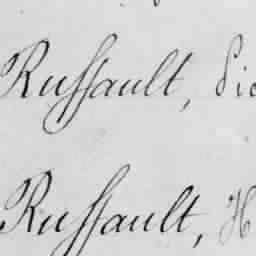 Ruffault, Vic
Ruffault, H